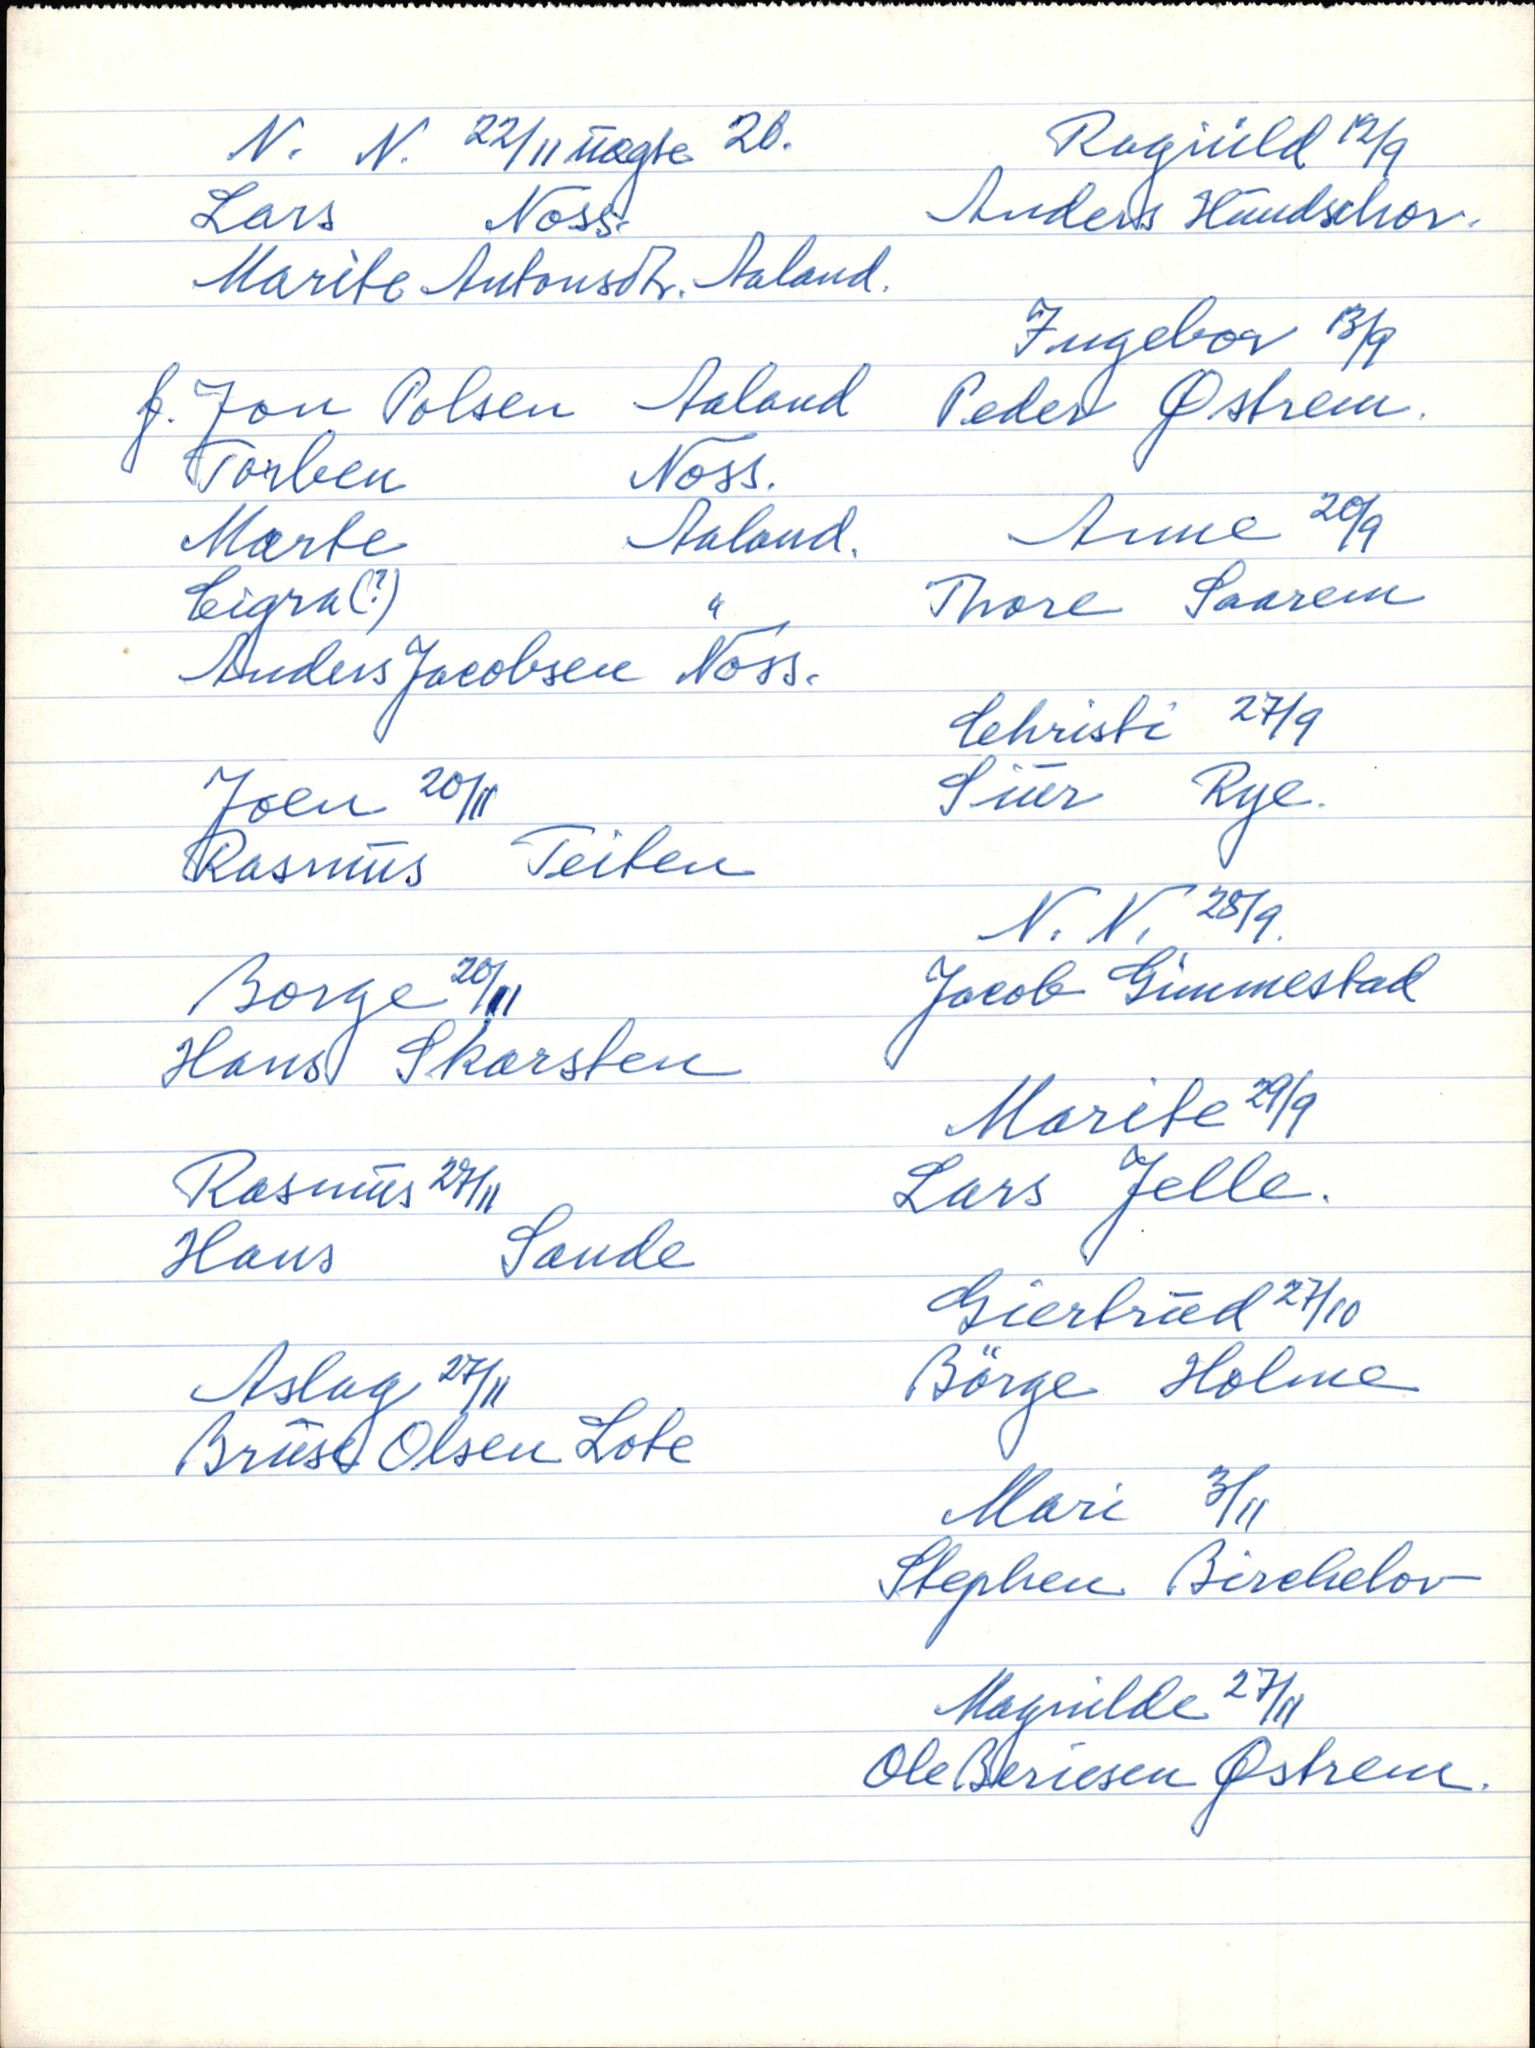 N. N. 22/11 üægte 2b.
Lars Noss.
Marite Antonsdtr. Aaland.
f. Jon Polsen Aaland
Torben Noss.
Marte Aaland.
Cigra(?) "
Anders Jacobsen Noss.
Joen 20/11
Rasmüs Teiten
Borge 20/11
Hans Skarsten
Rasmüs 27/11
Hans Sande
Aslag 27/11
Brüse Olsen Lote
Ragnild 12/9
Anders Hündschor.
Ingebor 13/9
Peder Østrem.
Anne 20/9
Thore Saarem
Christi 27/9
Siür Rye.
N. N. 28/9.
Jacob Gimmestad
Marite 29/9
Lars Jelle.
Giertrüd 27/10
Börge Holme
Mari 3/11
Stephen Birchelov
Magnilde 27/11
Ole Østrem.